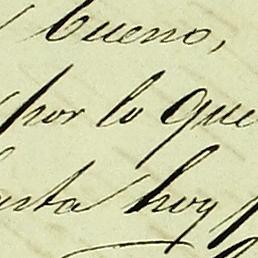 bueno,
por lo que
hasta hoy